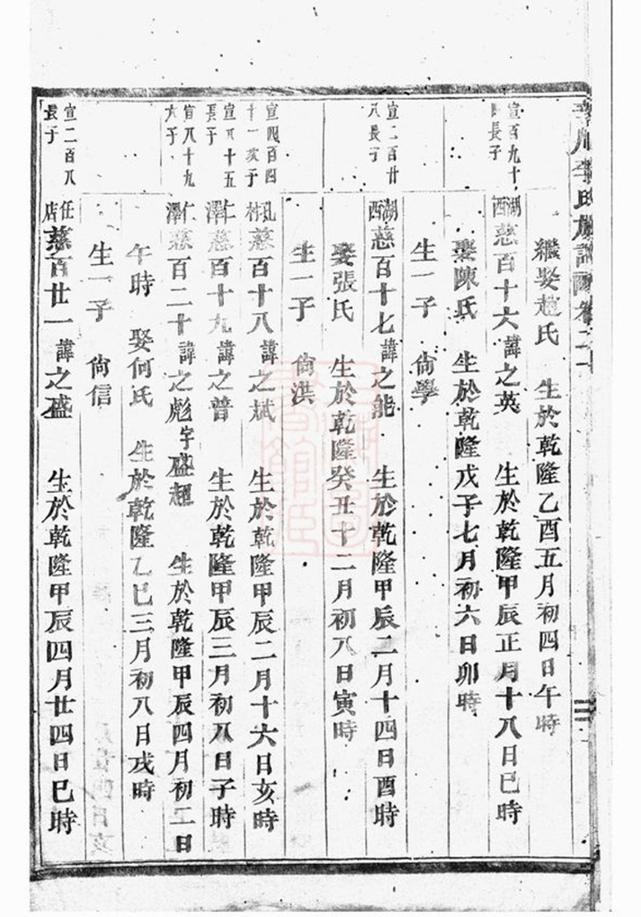 李氏族譜
繼娶趙氏 生於乾隆乙酉五月初四日午時
宣百九十
長子
湖西 慈百十六 諱之英 生於乾隆甲辰正月十八日巳時
娶陳氏 生於乾隆戊子七月初六日卯時
生一子 尙學
宣二百廿
八長子
湖西 慈百十七 諱之能 生於乾隆甲辰二月十四日酉時
娶張氏 生於乾隆癸丑十二月初八日寅時
生一子 尙洪
宣四百四
十一次子
慈百十八 諱之斌 生於乾隆甲辰二月十六日亥時
宣八十五
長子
仁澤 慈百十九 諱之普 生於乾隆甲辰三月初八日子時
宣八十九
六子
仁澤 慈百二十 諱之彪 字盛超 生於乾隆甲辰四月初二日
午時 娶何氏 生於乾隆乙巳三月初八日戌時
生一子 尙信
宣二百八
長子
任店 慈百廿一 諱之盛 生於乾隆甲辰四月廿四日巳時